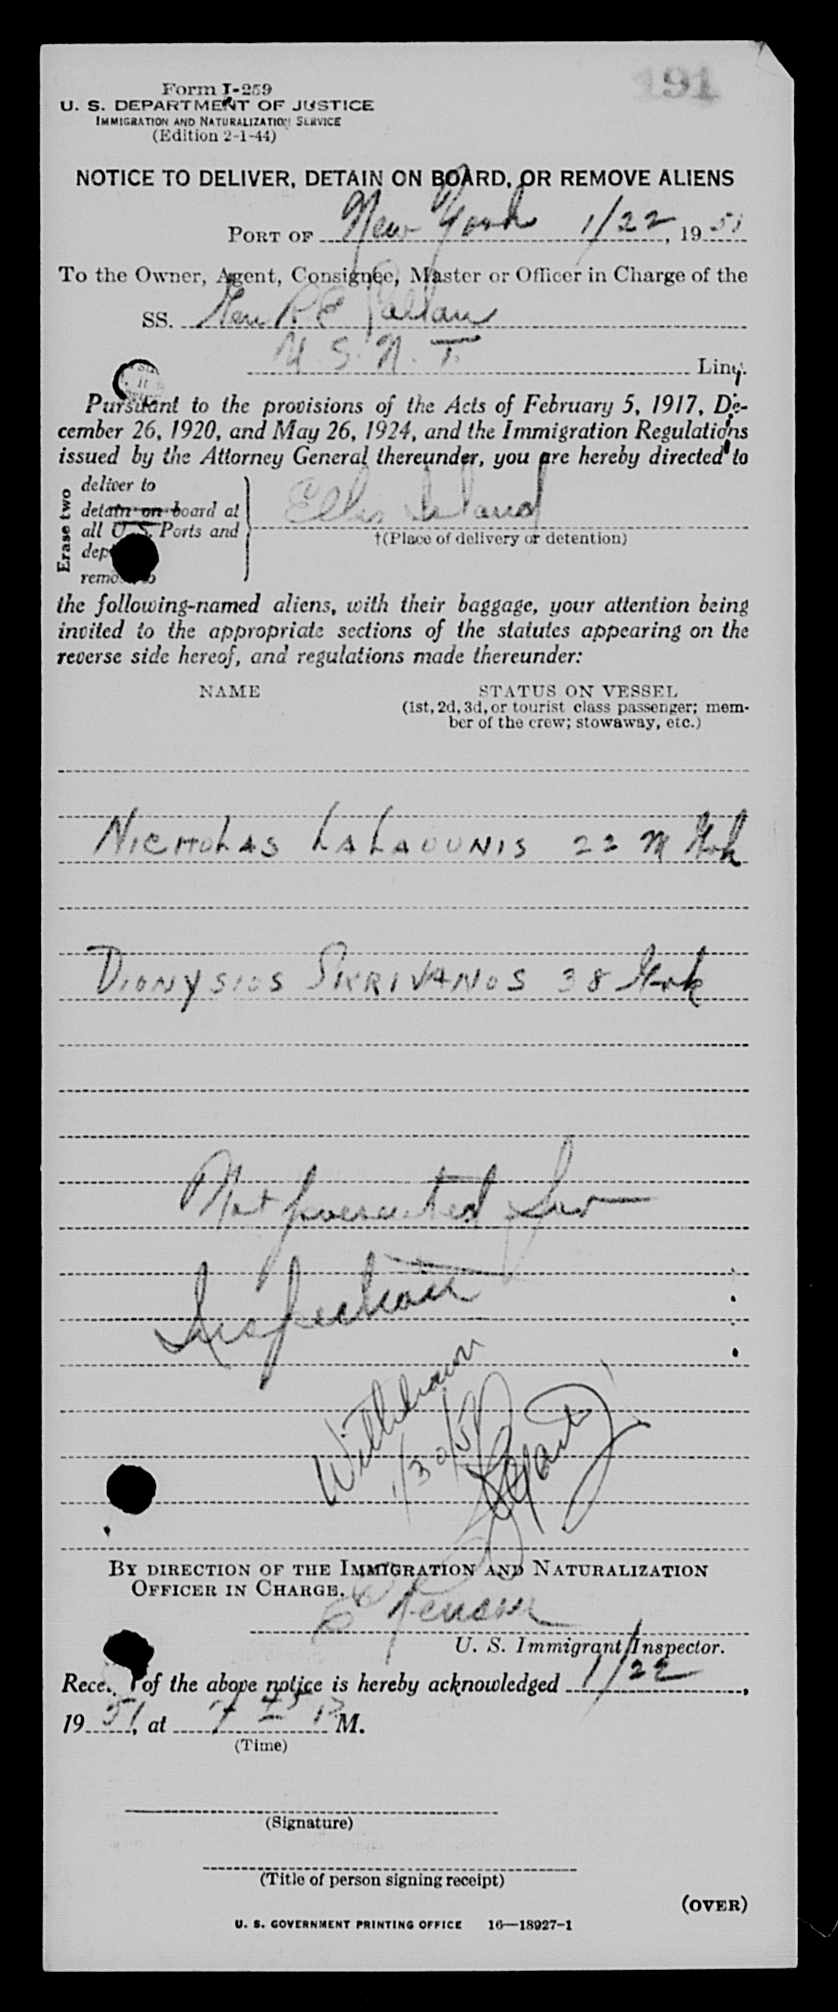 191
Form I-259
U. S. DEPARTMENT OF JUSTICE
IMMIGRATION AND NATURALIZATION SERVICE
(Edition 2-1-44)
NOTICE TO DELIVER, DETAIN ON BOARD, OR REMOVE ALIENS
PORT OF New York 1/22, 1951
To the Owner, Agent, Consignee, Master or Officer in Charge of the
SS. Gen R E Callan
U. S. N. T. Line.
Pursuant to the provisions of the Acts of February 5, 1917, De-
cember 26, 1920, and May 26, 1924, and the Immigration Regulations
issued by the Attorney General thereunder, you are hereby directed to
Erase two
deliver to
detain on board at
all U. S. Ports and
Ellis Island
†(Place of delivery or detention)
the following-named aliens, with their baggage, your attention being
invited to the appropriate sections of the statutes appearing on the
reverse side hereof, and regulations made thereunder:
NAME STATUS ON VESSEL
(1st, 2d, 3d, or tourist class passenger; mem-
ber of the crew; stowaway, etc.)
NICHOLAS LALAOUNIS 22 M
DIONYSIOS SKRIVANOS 38
Not presented for
Inspection
Withdrawn
1/30/51
BY DIRECTION OF THE IMMIGRATION AND NATURALIZATION
OFFICER IN CHARGE.
U. S. Immigrant Inspector.
of the above notice is hereby acknowledged 1/22,
1951, at M.
(Time)
(Signature)
(Title of person signing receipt)
(OVER)
U. S. GOVERNMENT PRINTING OFFICE 16—18927-1